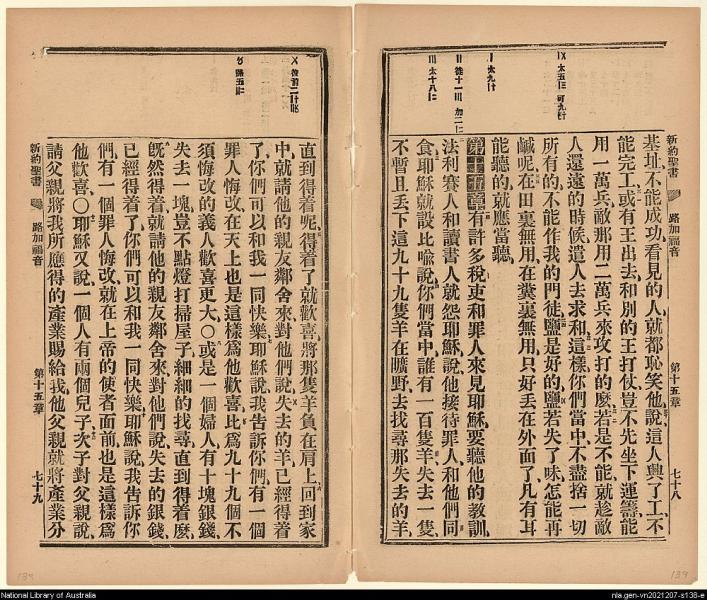 新約聖書 路加福音 第十五章 七十八
基址不能成功看見的人就都恥笑他說這人興了工不
能完工或有王出去和別的王打仗豈不先坐下運籌能
用一萬兵敵那用二萬兵來攻打的麼若是不能就趁敵
人還遠的時候遣人去求和這樣你們當中不盡捨一切
所有的不能作我的門徒鹽是好的鹽若失了味怎能再
鹹呢在田裏無用在糞裏無用只好丢在外面了凡有耳
能聽的就應當聽
第十五章有許多稅吏和罪人來見耶穌要聽他的教訓
法利賽人和讀書人就怨耶穌說他接待罪人和他們同
食耶穌就設比喻說你們當中誰有一百隻羊失去一隻
不暫且丢下這九十九隻羊在曠野去找尋那失去的羊
直到得着呢得着了就歡喜將那隻羊負在肩上回到家
中就請他的親友鄰舍來對他們說失去的羊已經得着
了你們可以和我一同快樂耶穌說我告訴你們有一個
罪人悔改在天上也是這樣爲他歡喜比爲九十九個不
須悔改的義人歡喜更大〇或是一個婦人有十塊銀錢
失去一塊豈不點燈打掃屋子細細的找尋直到得着麼
旣然得着就請他的親友鄰舍來對他們說失去的銀錢
已經得着了你們可以和我一同快樂耶穌說我告訴你
們有一個罪人悔改就在上帝的使者面前也是這樣爲
他歡喜〇耶穌又說一個人有兩個兒子次子對父親說
請父親將我所應得的產業賜給我他父親就將產業分
新約聖書 路加福音 第十五章 七十九
139
National Library of Australia
nla.gen-vn2021207-s138-e